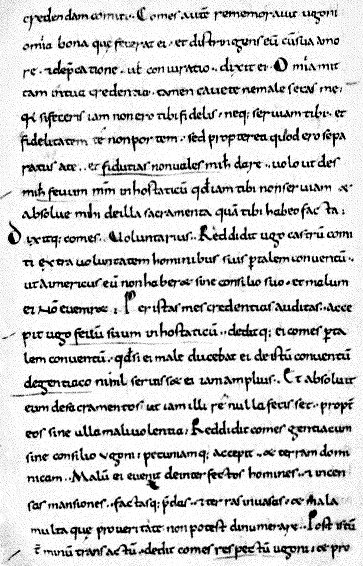 credendam comiti. Comes autē rememoravit ugoni
om̄ia bona quę fecerat ei. et distringens eū cū sua amo
re. & dep̄catione. vel coniuratio. dixit ei. Om̄ia mit
tam in tua credentia. tamen cavete ne male setas me;
qd si feceris iam non ero tibi fidelis. neq; serviam tibi. et
fidelitatem te non portem. sed propterea quod ero sepa
ratus a te. et fidutias non vales mihi dare. volo ut des
mihi fevum mm̄ in hostaticū qd iam tibi non serviam &
absolve mihi de illa sacramenta quā tibi habeo facta:
Dixitq; comes. Voluntarius. Reddidit ugo castrū comi
ti extra voluntatem hominibus suis p talem conventū.
ut aimericus eum non haberet sine consilio suo. et malum
ei nō evenret. P istas mes credentias auditas. acce
pit ugo fevum suum in hostaticū. dedit q; ei comes p ta
lem conventū. qd si ei male ducebat ei de istū conventum
de gentiaco nihil servisset ei iam amplius. Et absolvit
eum de sacramentos ut iam illi rē nulla fecisset. propt
eos sine ulla malivolentia. Reddidit comes gentiacum
sine consilio ugoni. pecuniamq; accepit. & terram domi
nicam. Malū ei evenit de interfectos homines. & incen
sas mansiones. factasq; p̄das. & terras invasas. & mala
multa que pro veritate non potest dinumerare. Post istū
t̄minū transactū. dedit comes respectū ugoni. & pro